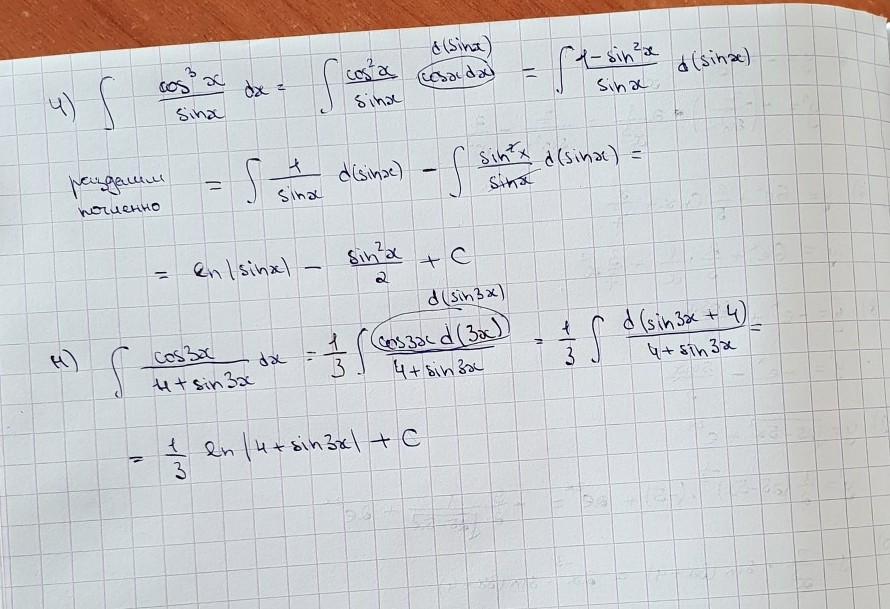 d(sinx)
ч) ∫ cos³x/sinx dx = ∫ cos²x/sinx cosx dx = ∫ 1-sin²x/sinx d(sinx)
разделим почленно = ∫ 1/sinx d(sinx) - ∫ sin²x/sinx d(sinx) =
= ln|sinx| - sin²x/2 + C
d(sin3x)
н) ∫ cos3x/4+sin3x dx = 1/3 ∫ cos3x d(3x)/4+sin3x = 1/3 ∫ d(sin3x+4)/4+sin3x =
= 1/3 ln|4+sin3x| + C